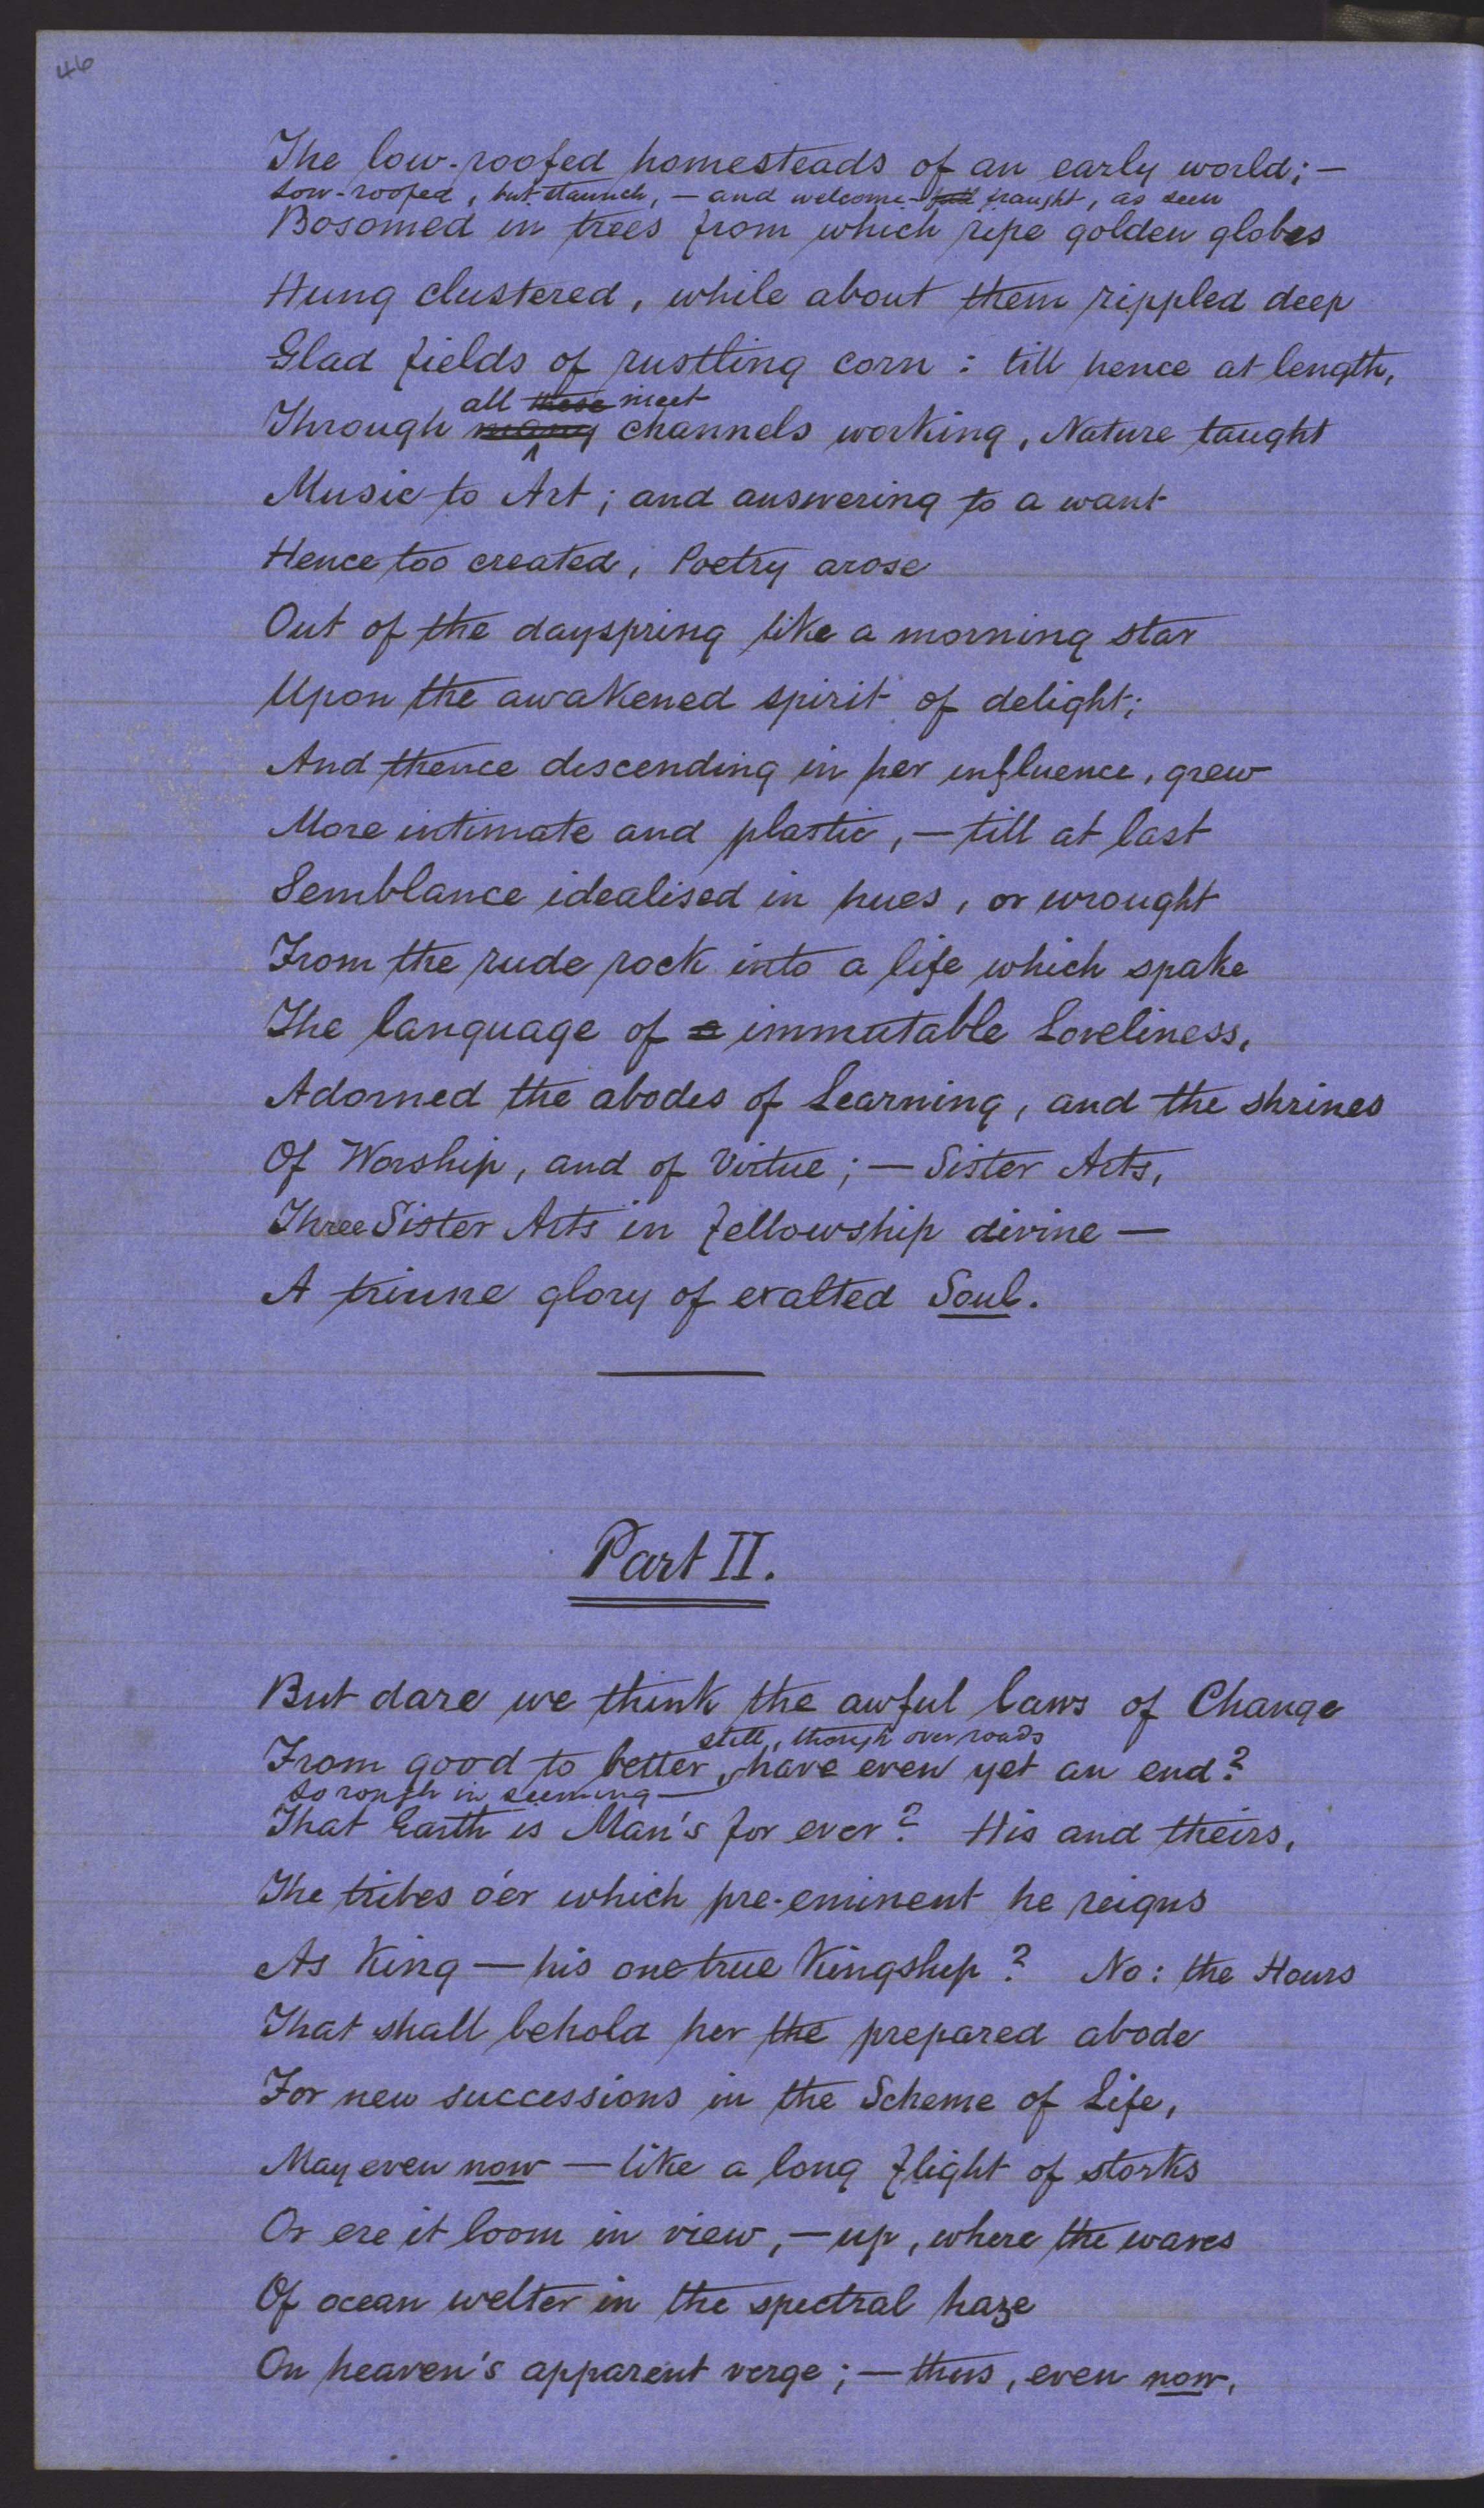 46
The low-roofed homesteads of an early world; —
Low-roofed, but staunch, — and welcome-full fraught, as seen
Bosomed in trees from which ripe golden globes
Hung clustered, while about them rippled deep
Glad fields of rustling corn: till hence at length,
all these meet
Through many channels working, Nature taught
Music to Art; and answering to a want
Hence too created, Poetry arose
Out of the dayspring like a morning star
Upon the awakened spirit of delight;
And thence descending in her influence, grew
More intimate and plastic, — till at last
Semblance idealised in hues, or wrought
From the rude rock into a life which spake
The language of a immutable Loveliness,
Adorned the abodes of Learning, and the shrines
Of Worship, and of Virtue; — Sister Arts,
Three Sister Arts in fellowship divine —
A triune glory of exalted Soul.
Part II.
But dare we think the awful laws of Change
still, though over roads
From good to better, have even yet an end?
So rough in seeming —
That Earth is Man's for ever? His and theirs,
The tribes o'er which pre-eminent he reigns
As King — his one true Kingship? No: the Hours
That shall behold her the prepared abode
For new successions in the Scheme of Life,
May even now — like a long flight of storks
Or ere it loom in view, — up, where the waves
Of ocean welter in the spectral haze
On heaven's apparent verge; — thus, even now,